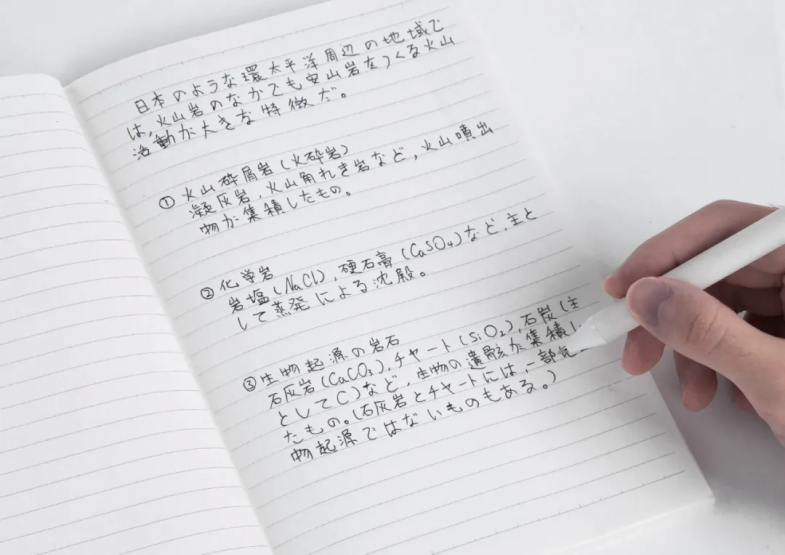 日本のような環太平洋周辺の地域で
は,火山岩のなかでも安山岩をつくる火山
活動が大きな特徴だ。
① 火山砕屑岩(火砕岩)
凝灰岩,火山角れき岩など,火山噴出
物が集積したもの。
② 化学岩
岩塩(NaCl),硬石膏(CaSO4)など,主と
して蒸発による沈殿。
③ 生物起源の岩石
石灰岩(CaCO3),チャート(SiO2),石炭(主
としてC)など,生物の遺骸が集積し
たもの。(石灰岩とチャートには,一部
物起源ではないものもある。)